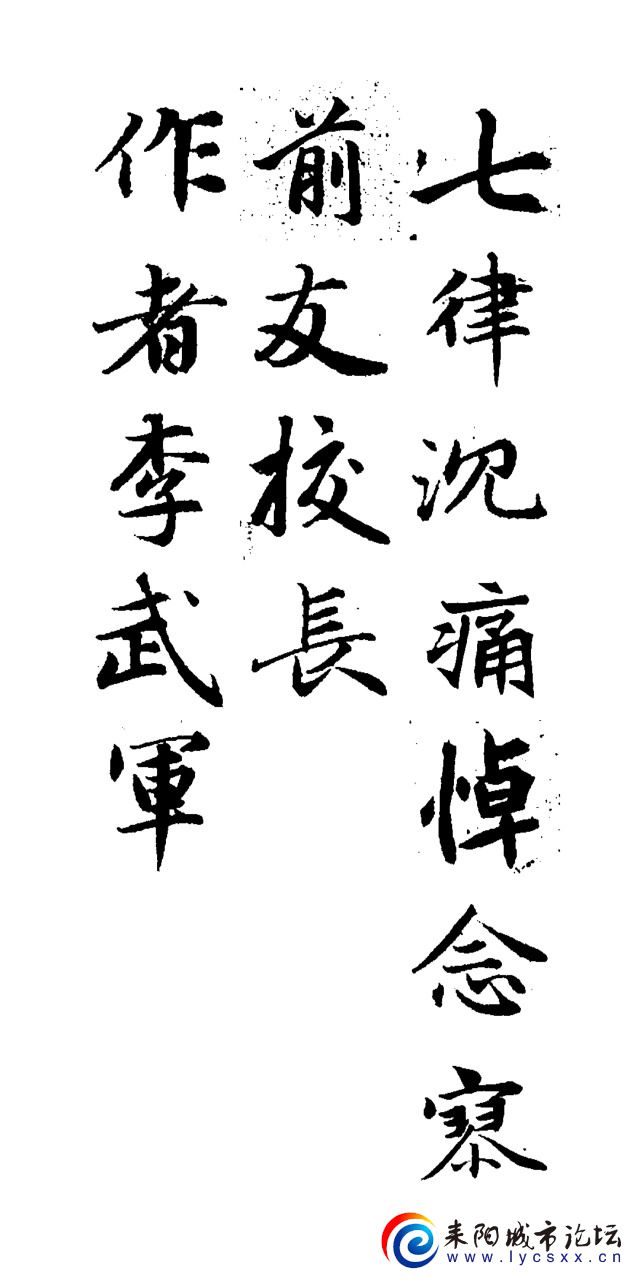 七律沉痛悼念寮
前友校長
作者李武軍
耒阳城市论坛
www.lycsxx.cn